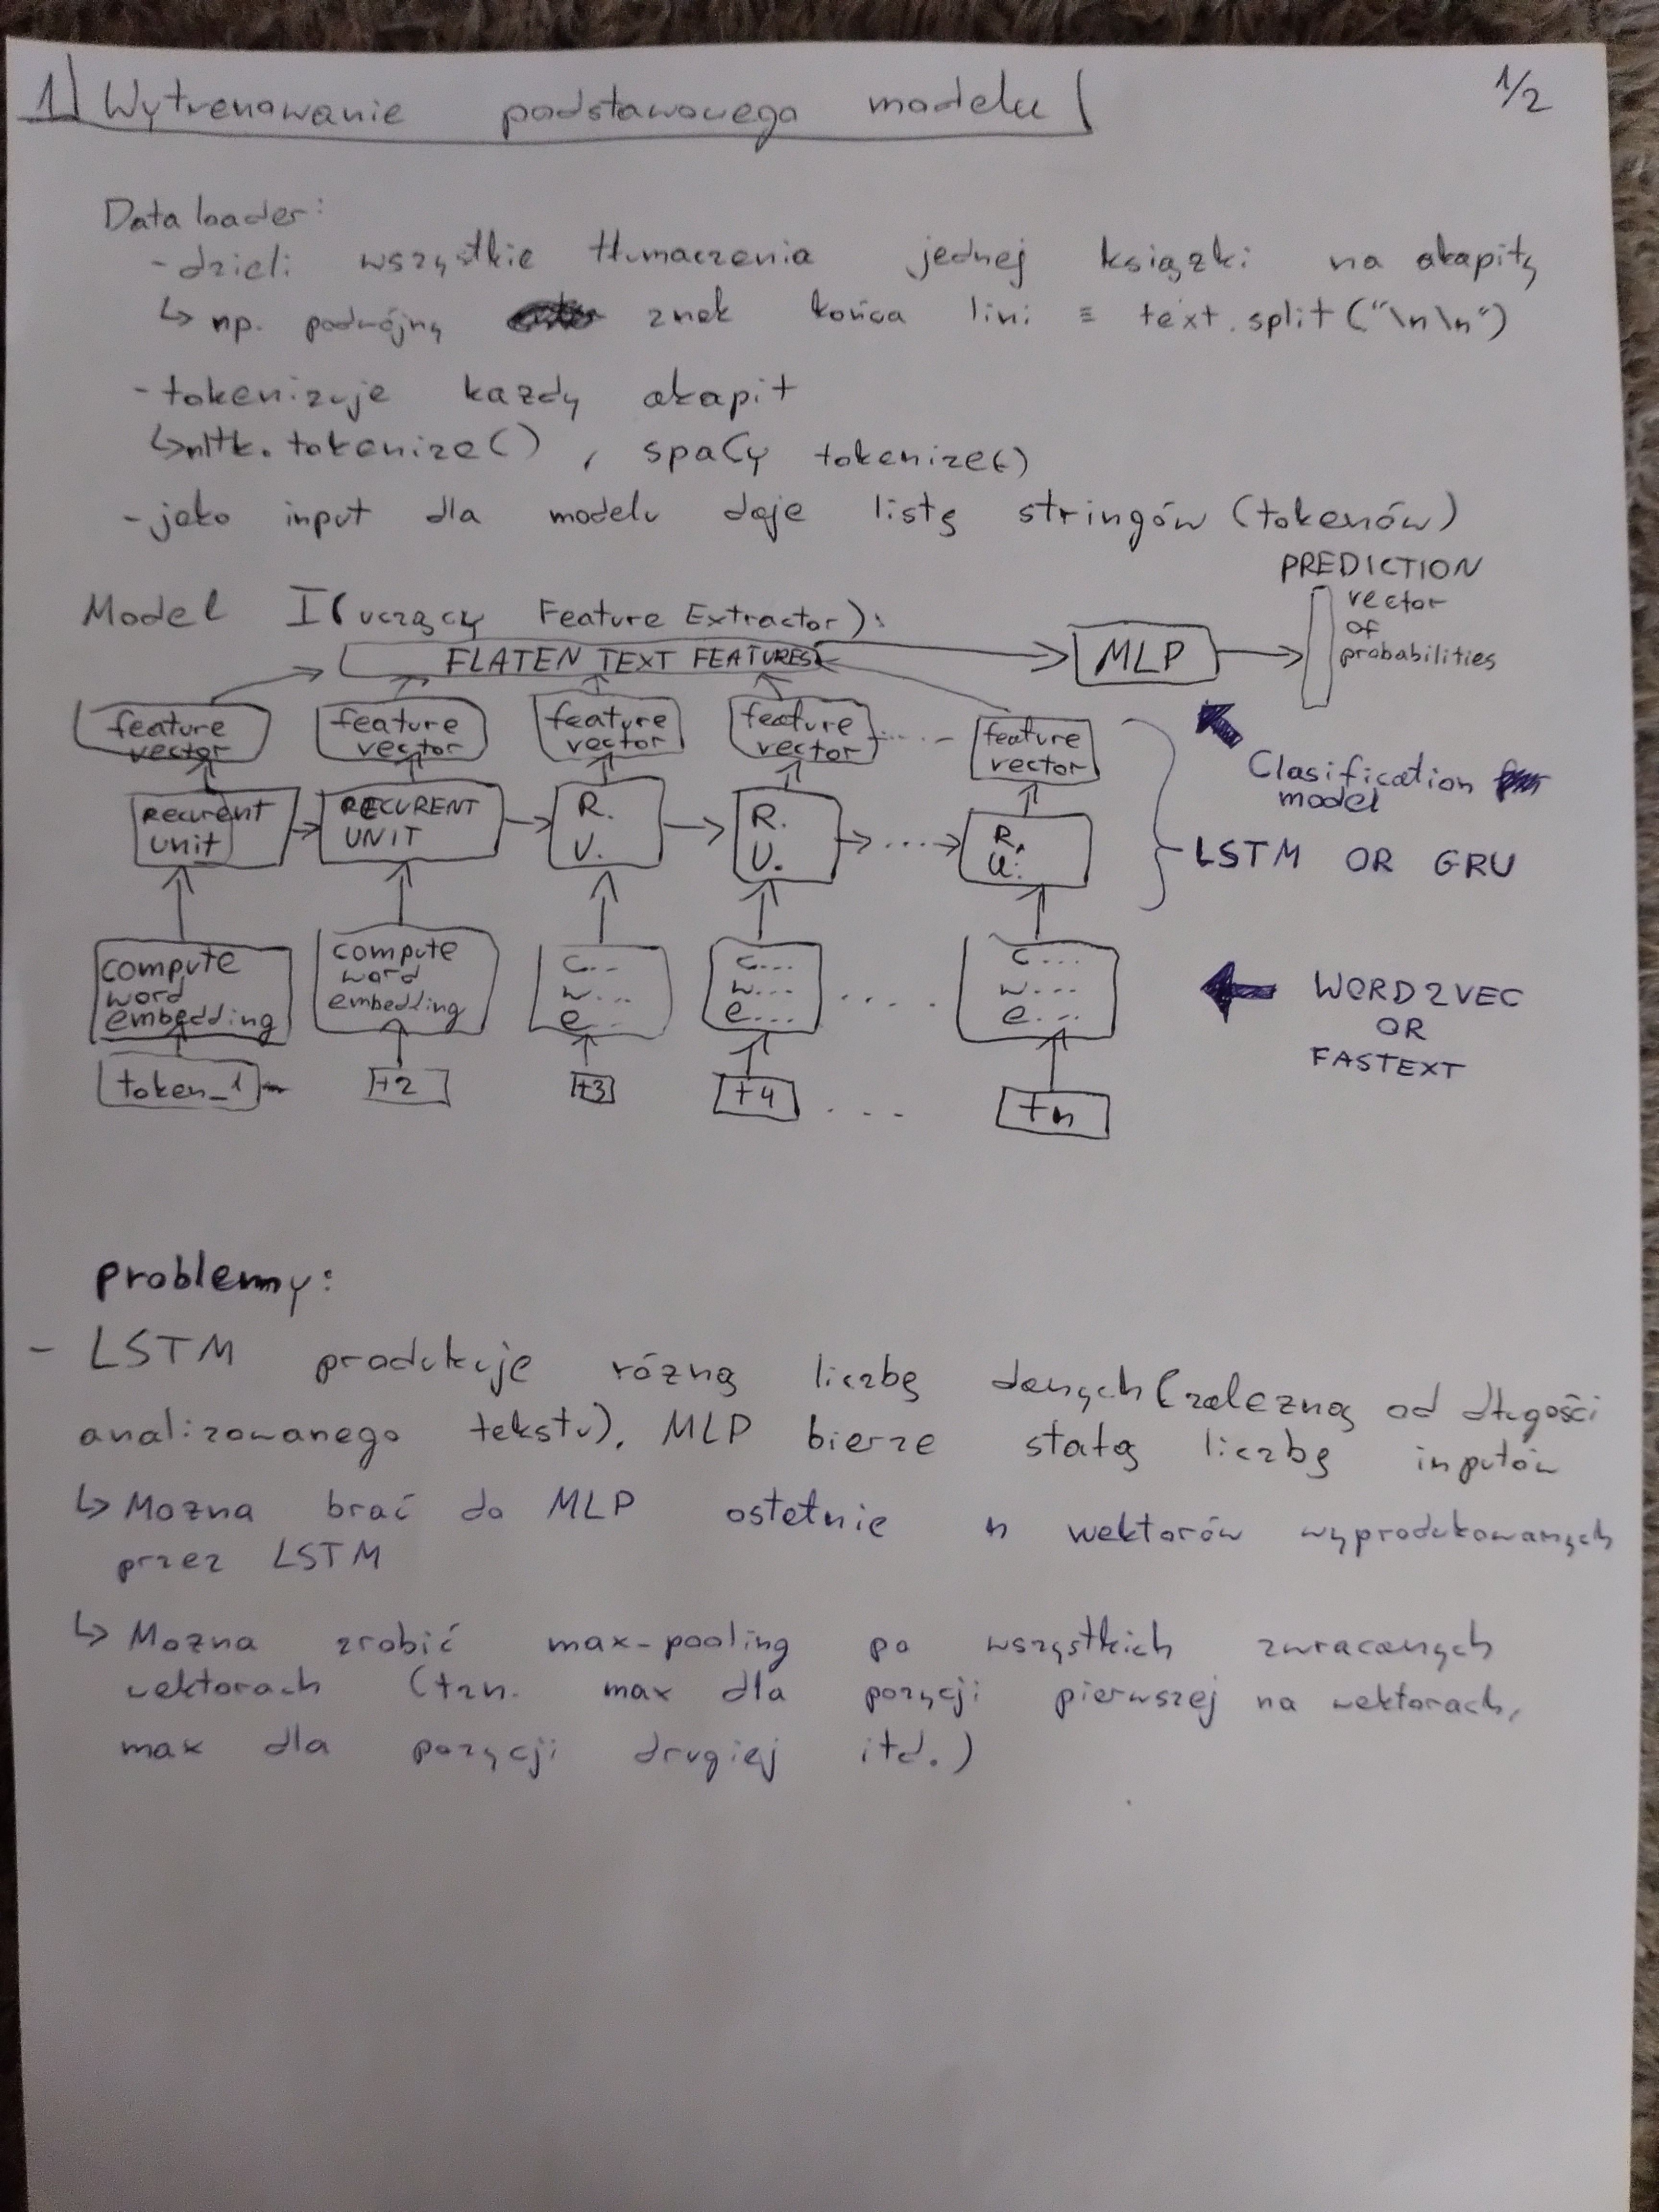 1) Wytrenowanie podstawowego modelu
1/2
Data loader:
- dzieli wszystkie tłumaczenia jednej książki na akapity
↳ np. podwójny znak końca lini ≡ text.split("\n\n")
- tokenizuje każdy akapit
↳ nltk.tokenize() , spaCy tokenize()
- jako input dla modelu daje listę stringów (tokenów)
PREDICTION
vector
of
probabilities
Model I (uczący Feature Extractor):
FLATEN TEXT FEATURES
MLP
feature vector
feature vector
feature vector
feature vector
.....
feature vector
Clasification
model
Recurent unit
RECURENT UNIT
R. U.
R. U.
.....
R. U.
LSTM OR GRU
compute word embedding
compute word embedding
c... w... e...
c... w... e...
.....
c... w... e...
WORD2VEC
OR
FASTEXT
token_1
t2
t3
t4
...
tn
problemy:
- LSTM produkuje różną liczbę danych (zależną od długości
analizowanego tekstu). MLP bierze stałą liczbę inputów
↳ Mozna brać do MLP ostatnie n wektorów wyprodukowanych
przez LSTM
↳ Mozna zrobić max-pooling po wszystkich zwracanych
wektorach (tzn. max dla pozycji pierwszej na wektorach,
max dla pozycji drugiej itd.)